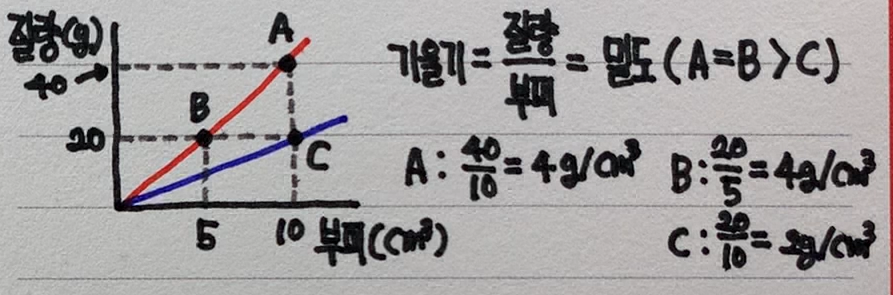 질량(g)
40
20
A
B
C
5 10 부피(cm³)
기울기 = 질량/부피 = 밀도 (A=B>C)
A : 40/10 = 4g/cm³ B : 20/5 = 4g/cm³
C : 20/10 = 2g/cm³